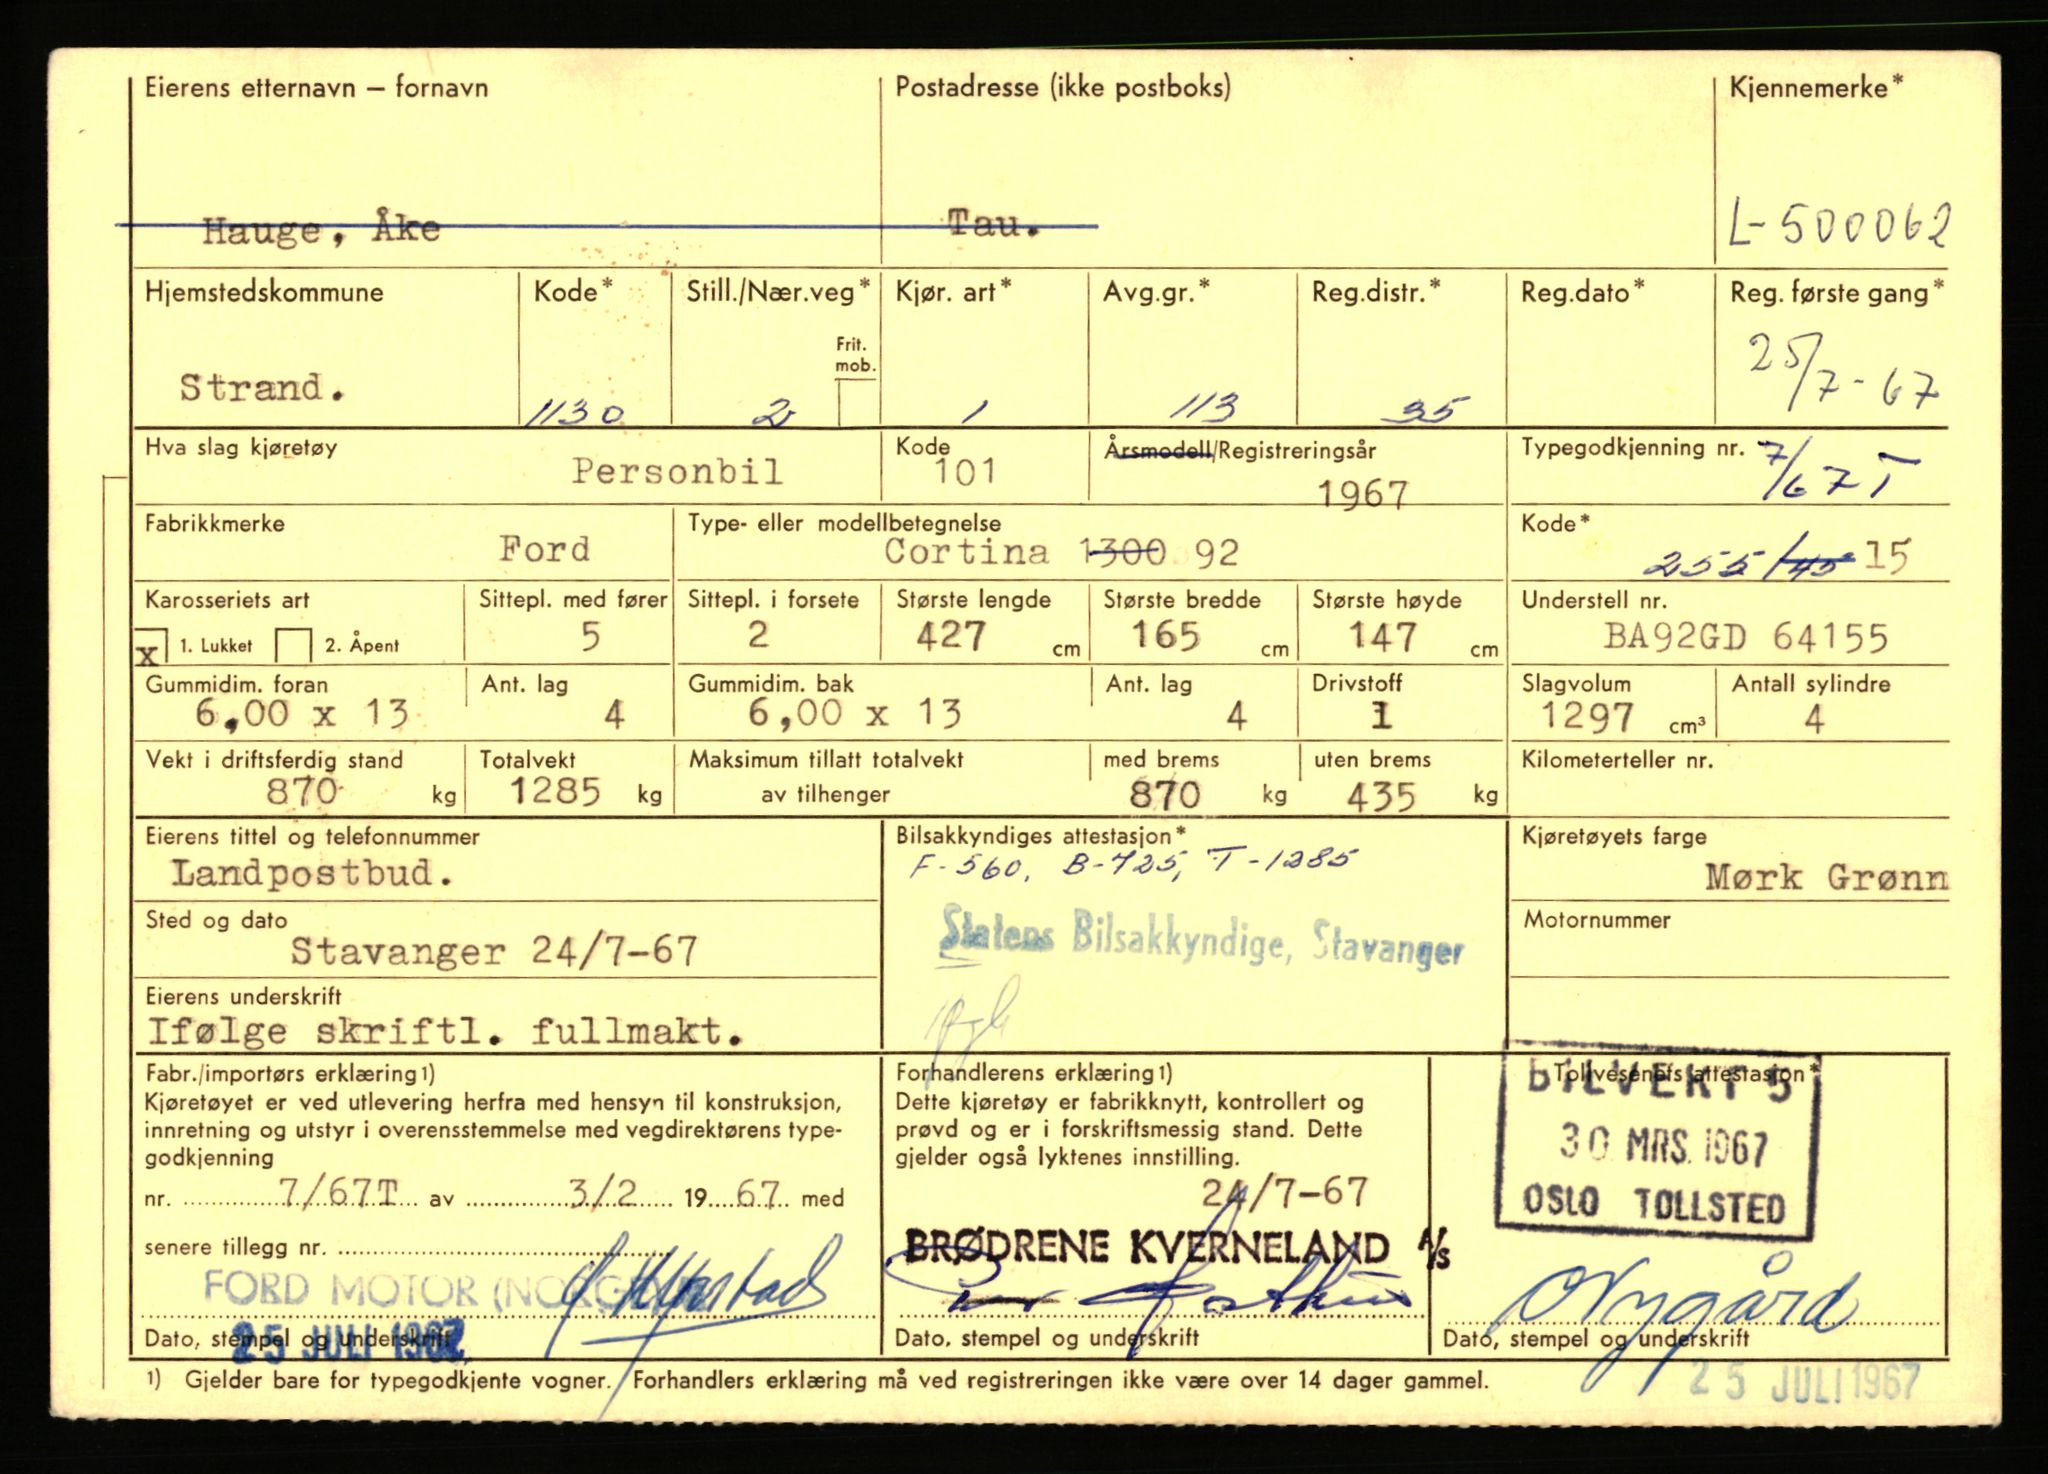 Eierens etternavn – fornavn
Hauge, Åke
Postadresse (ikke postboks)
Tau.
Kjennemerke*
L-500062
Hjemstedskommune
Strand.
Kode*
1130
Still./Nær.veg*
2
Frit.
mob.
Kjør. art*
1
Avg.gr.*
113
Reg.distr.*
35
Reg.dato*
Reg. første gang*
25/7-67
Hva slag kjøretøy
Personbil
Kode
101
Årsmodell/Registreringsår
1967
Typegodkjenning nr.
7/67 T
Fabrikkmerke
Ford
Type- eller modellbetegnelse
Cortina 1300 92
Kode*
255/45 15
Karosseriets art
x 1. Lukket 2. Åpent
Sittepl. med fører
5
Sittepl. i forsete
2
Største lengde
427 cm
Største bredde
165 cm
Største høyde
147 cm
Understell nr.
BA92GD 64155
Gummidim. foran
6,00 x 13
Ant. lag
4
Gummidim. bak
6,00 x 13
Ant. lag
4
Drivstoff
1
Slagvolum
1297 cm³
Antall sylindre
4
Vekt i driftsferdig stand
870 kg
Totalvekt
1285 kg
Maksimum tillatt totalvekt
av tilhenger
med brems
870 kg
uten brems
435 kg
Kilometerteller nr.
Eierens tittel og telefonnummer
Landpostbud.
Sted og dato
Stavanger 24/7-67
Eierens underskrift
Ifølge skriftl. fullmakt.
Bilsakkyndiges attestasjon*
F-560, B-725, T-1285
Statens Bilsakkyndige, Stavanger
Kjøretøyets farge
Mørk Grønn
Motornummer
Fabr./importørs erklæring 1)
Kjøretøyet er ved utlevering herfra med hensyn til konstruksjon,
innretning og utstyr i overensstemmelse med vegdirektørens type-
godkjenning
nr. 7/67T av 3/2 1967 med
senere tillegg nr.
FORD MOTOR (NORGE)
25 JULI 1967
Dato, stempel og underskrift
Forhandlerens erklæring 1)
Dette kjøretøy er fabrikknytt, kontrollert og
prøvd og er i forskriftsmessig stand. Dette
gjelder også lyktenes innstilling.
24/7-67
BRØDRENE KVERNELAND A/S
Dato, stempel og underskrift
Tollvesenets attestasjon*
BILVERT 5
30 MRS. 1967
OSLO TOLLSTED
Nygård
Dato, stempel og underskrift
25 JULI 1967
1) Gjelder bare for typegodkjente vogner. Forhandlers erklæring må ved registreringen ikke være over 14 dager gammel.